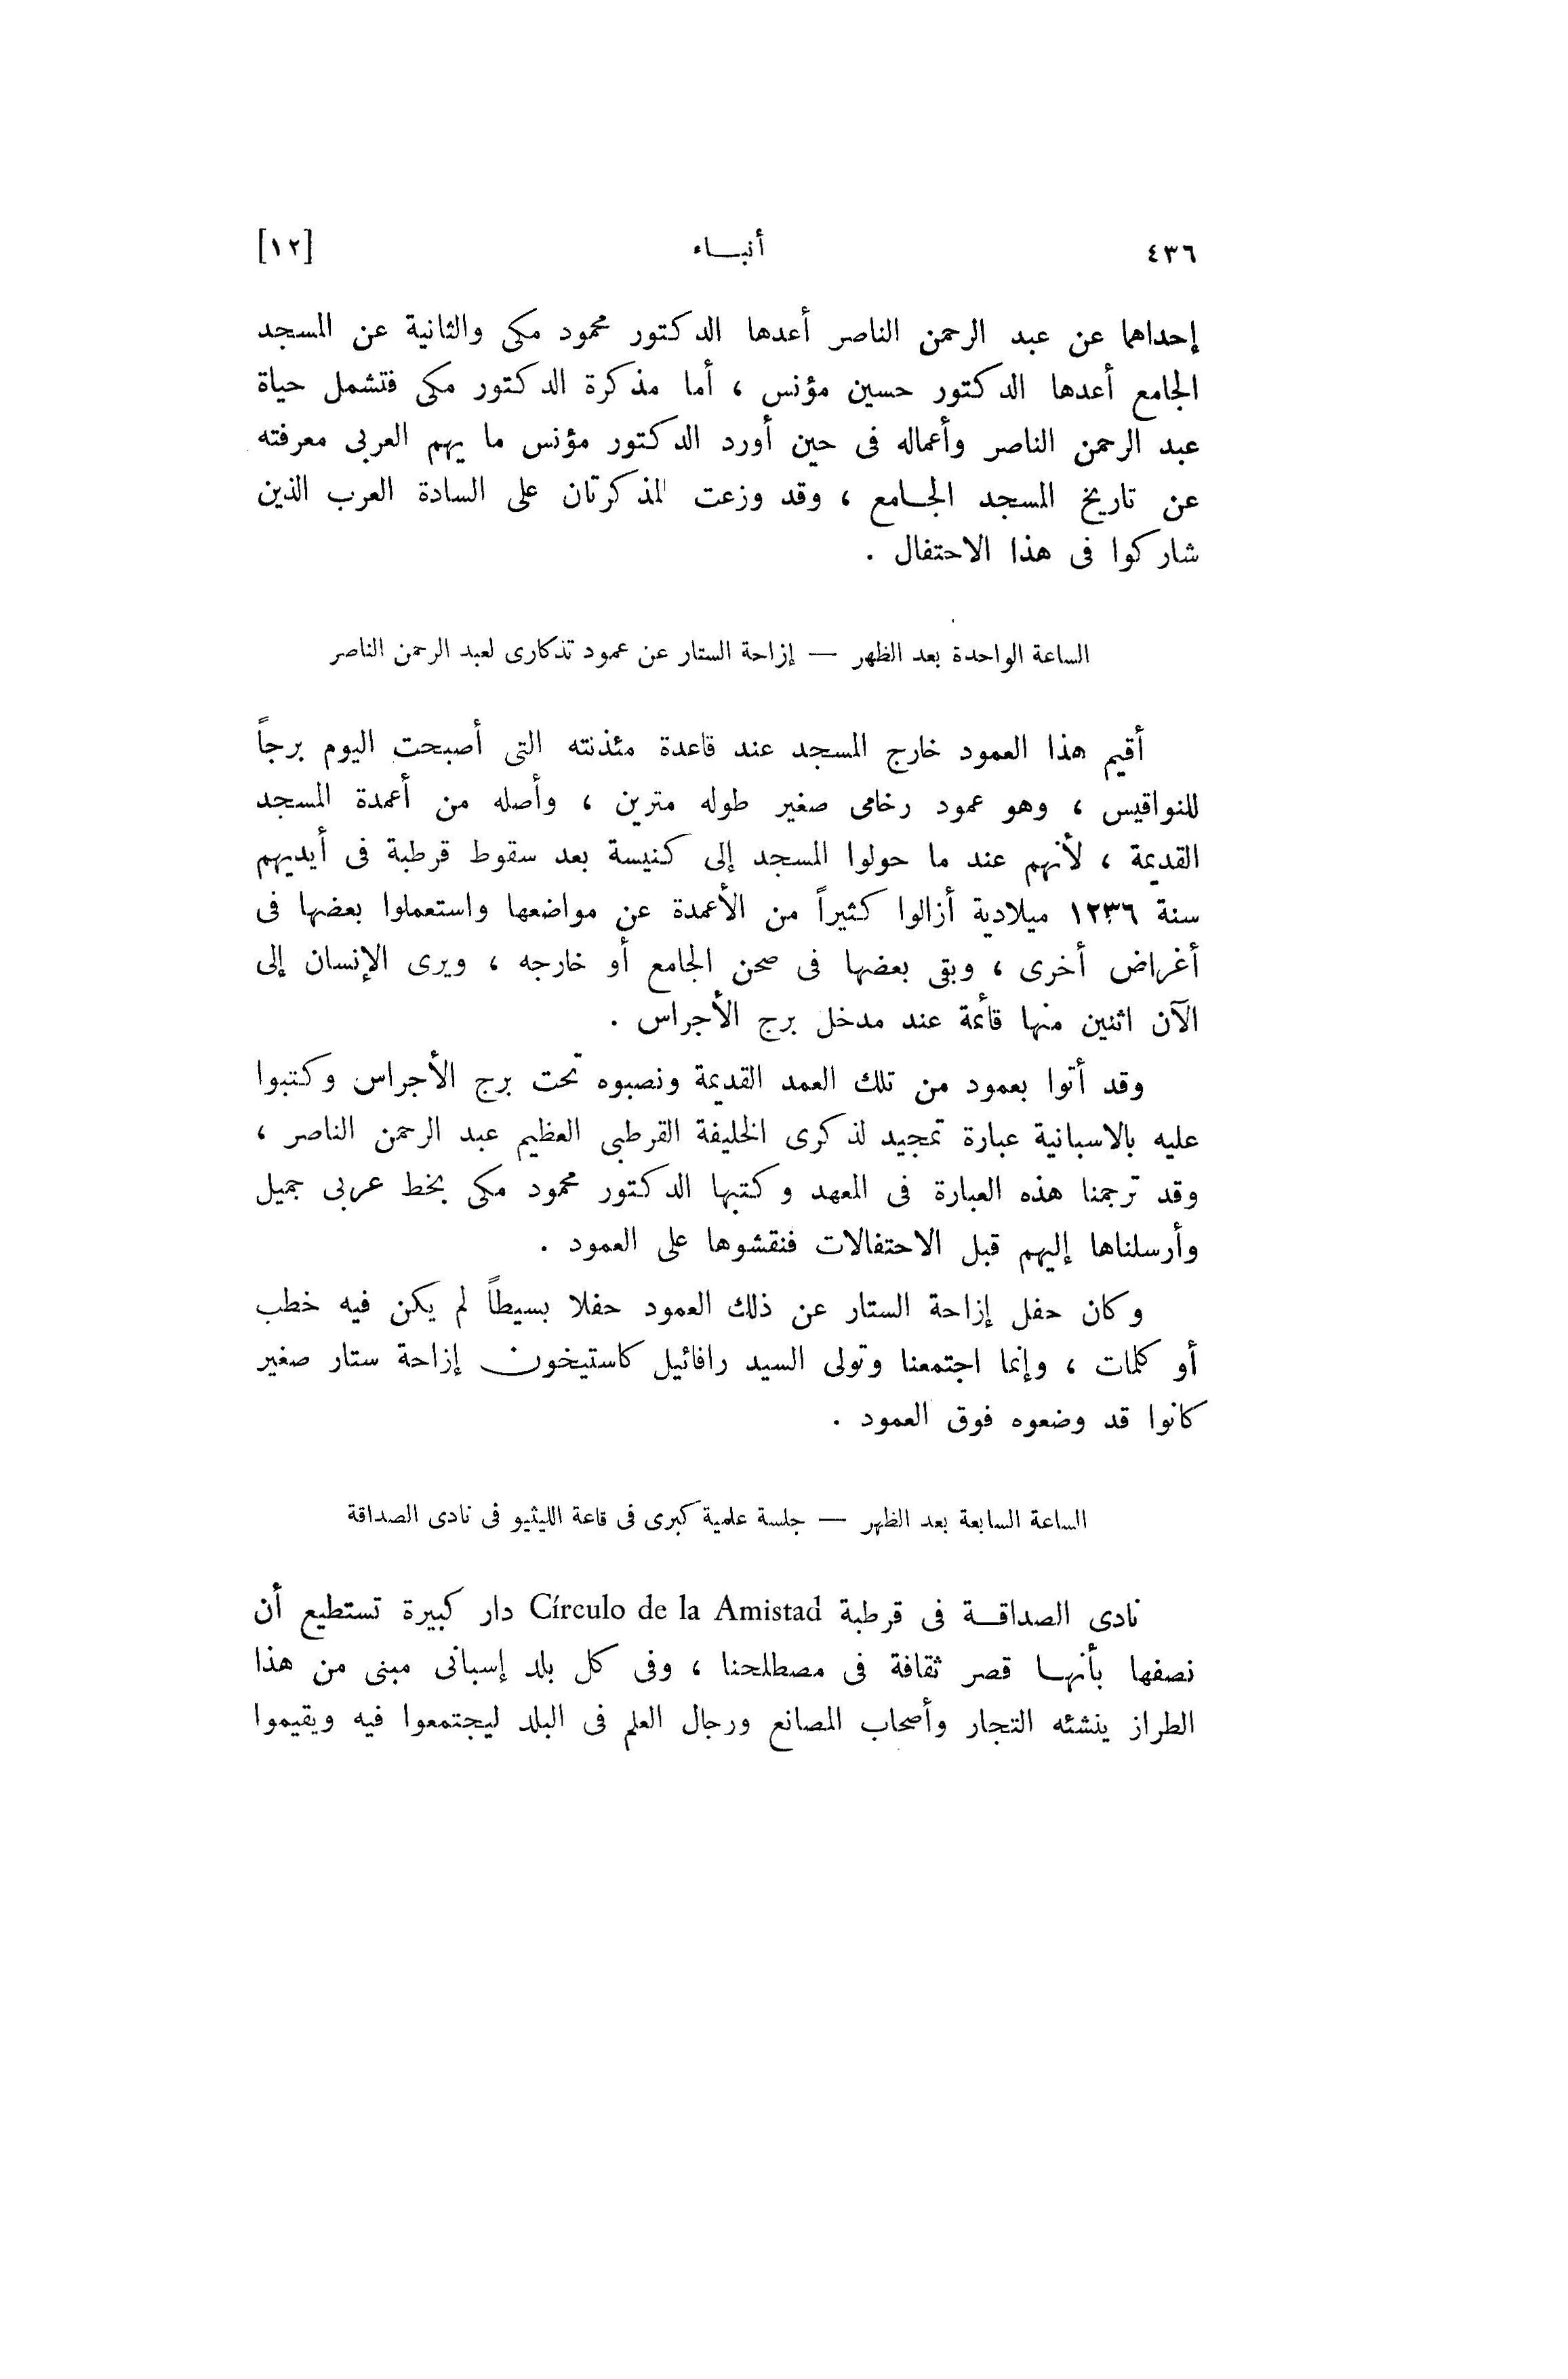 ٤٣٦ أنبـاء [١٢]
إحداهما عن عبد الرحمن الناصر أعدها الدكتور محمود مكى والثانية عن المسجد
الجامع أعدها الدكتور حسين مؤنس ، أما مذكرة الدكتور مكى فتشمل حياة
عبد الرحمن الناصر وأعماله فى حين أورد الدكتور مؤنس ما يهم العربى معرفته
عن تاريخ المسجد الجـامع ، وقد وزعت المذكرتان على السادة العرب الذين
شاركوا فى هذا الاحتفال .
الساعة الواحدة بعد الظهر — إزاحة الستار عن عمود تذكارى لعبد الرحمن الناصر
أقيم هذا العمود خارج المسجد عند قاعدة مئذنته التى أصبحت اليوم برجاً
للنواقيس ، وهو عمود رخامى صغير طوله مترين ، وأصله من أعمدة المسجد
القديمة ، لأنهم عند ما حولوا المسجد إلى كنيسة بعد سقوط قرطبة فى أيديهم
سنة ١٢٣٦ ميلادية أزالوا كثيراً من الأعمدة عن مواضعها واستعملوا بعضها فى
أغراض أخرى ، وبقى بعضها فى صحن الجامع أو خارجه ، ويرى الإنسان إلى
الآن اثنين منها قائمة عند مدخل برج الأجراس .
وقد أتوا بعمود من تلك العمد القديمة ونصبوه تحت برج الأجراس وكتبوا
عليه بالاسبانية عبارة تمجيد لذكرى الخليفة القرطبى العظيم عبد الرحمن الناصر ،
وقد ترجمنا هذه العبارة فى المعهد وكتبها الدكتور محمود مكى بخط عربى جميل
وأرسلناها إليهم قبل الاحتفالات فنقشوها على العمود .
وكان حفل إزاحة الستار عن ذلك العمود حفلا بسيطاً لم يكن فيه خطب
أو كلمات ، وإنما اجتمعنا وتولى السيد رافائيل كاستيخون إزاحة ستار صغير
كانوا قد وضعوه فوق العمود .
الساعة السابعة بعد الظهر — جلسة علمية كبرى فى قاعة الليثيو فى نادى الصداقة
نادى الصداقـة فى قرطبة Círculo de la Amistad دار كبيرة تستطيع أن
نصفها بأنهـا قصر ثقافة فى مصطلحنا ، وفى كل بلد إسبانى مبنى من هذا
الطراز ينشئه التجار وأصحاب المصانع ورجال العلم فى البلد ليجتمعوا فيه ويقيموا